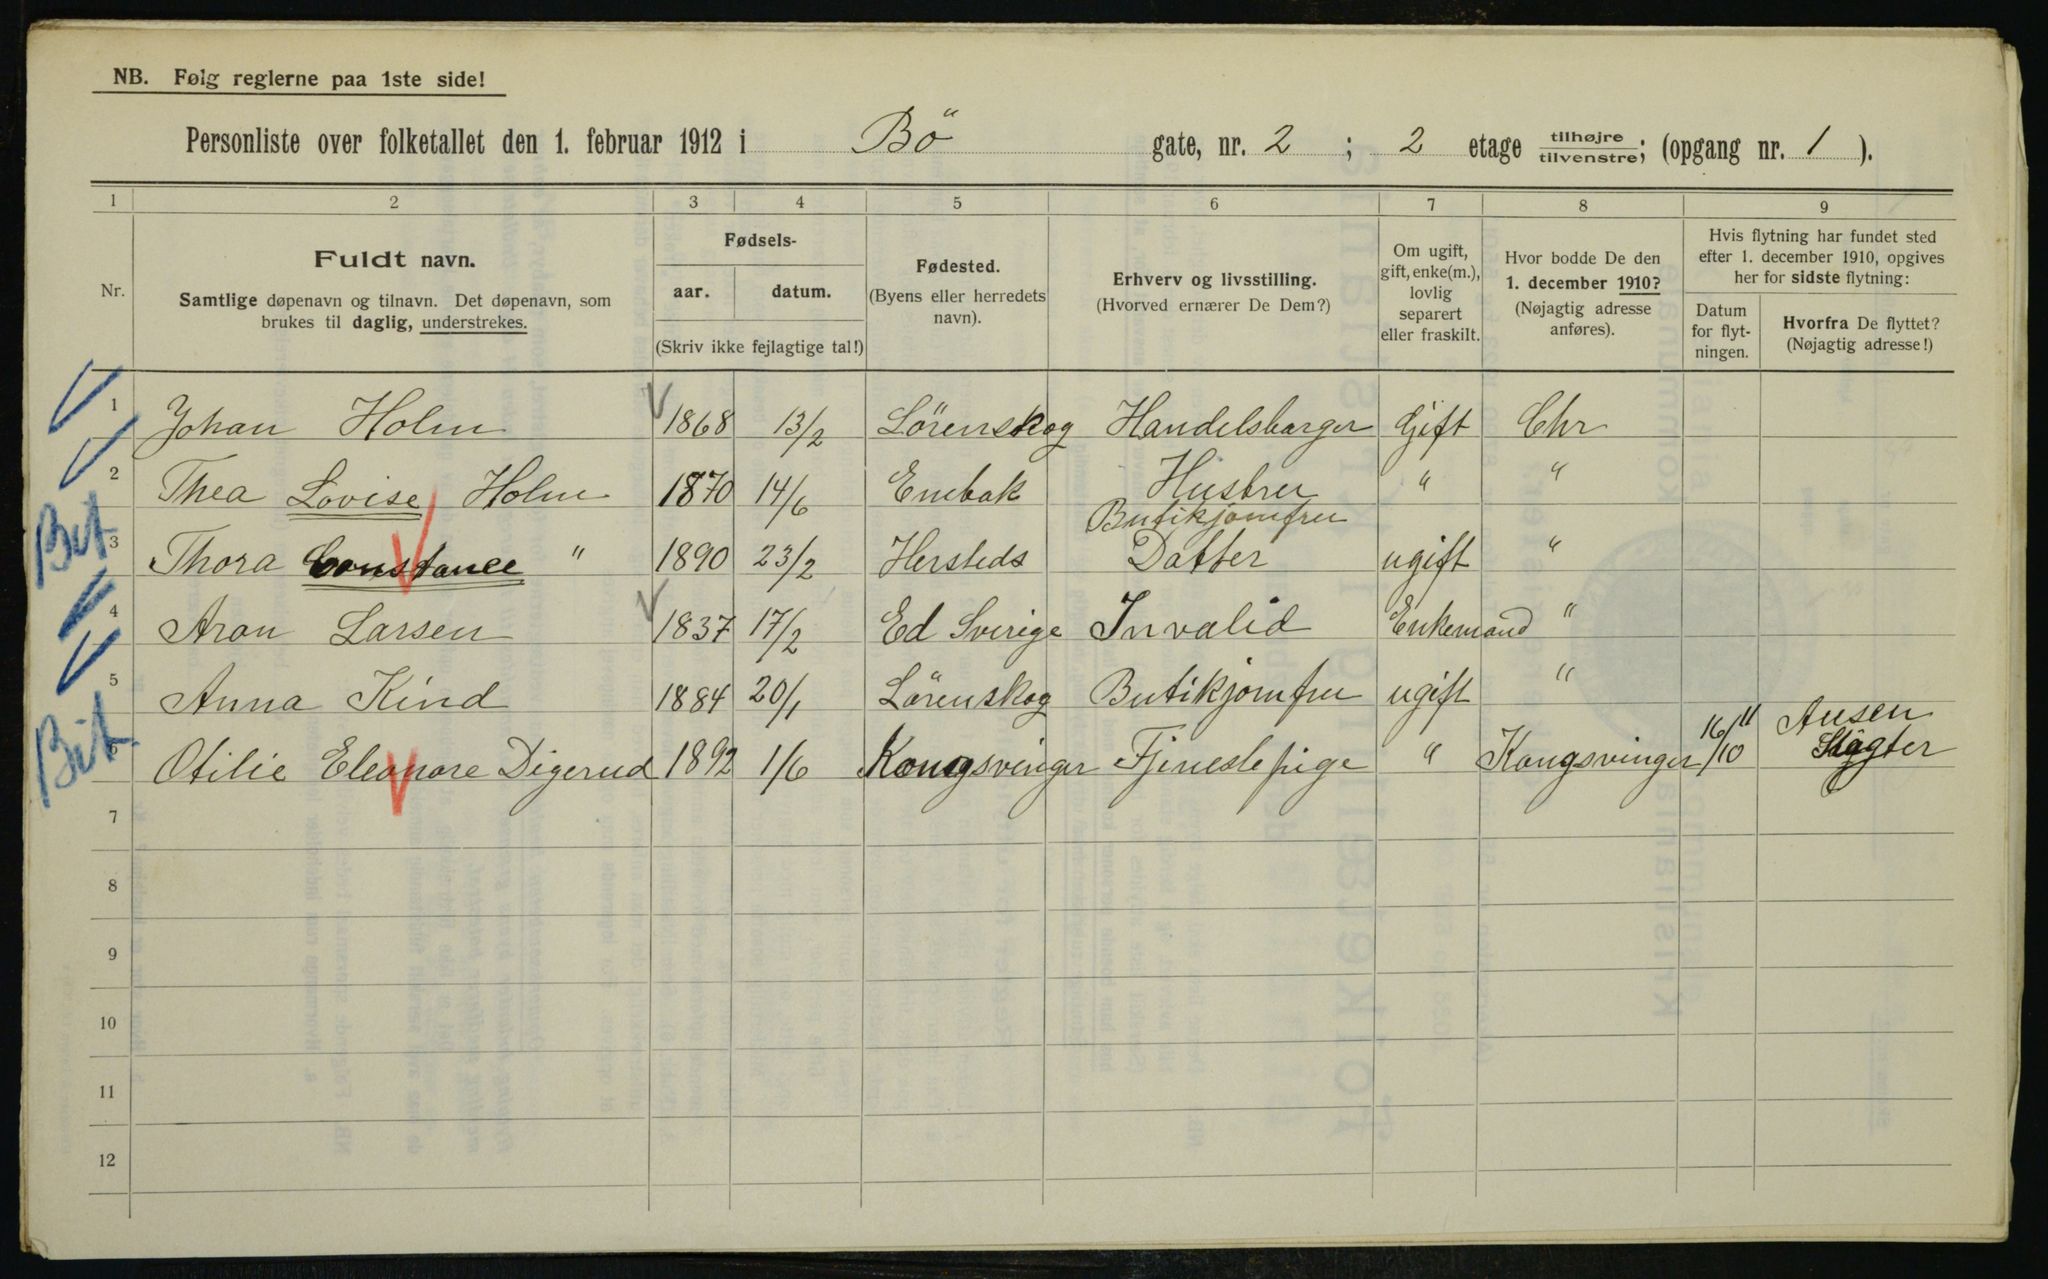 NB. Følg reglerne paa 1ste side!
Personliste over folketallet den 1. februar 1912 i Bö gate, nr. 2 ; 2 etage tilhøjre/tilvenstre; (opgang nr. 1 ).
1 2 3 4 5 6 7 8 9
Nr.
Fuldt navn.
Samtlige døpenavn og tilnavn. Det døpenavn, som
brukes til daglig, understrekes.
Fødsels-
aar. datum.
(Skriv ikke fejlagtige tal!)
Fødested.
(Byens eller herredets
navn).
Erhverv og livsstilling.
(Hvorved ernærer De Dem?)
Om ugift,
gift, enke(m.),
lovlig
separert
eller fraskilt.
Hvor bodde De den
1. december 1910?
(Nøjagtig adresse
anføres).
Hvis flytning har fundet sted
efter 1. december 1910, opgives
her for sidste flytning:
Datum
for flyt-
ningen.
Hvorfra De flyttet?
(Nøjagtig adresse!)
1 Johan Holm 1868 13/2 Lörenskog Handelsborger Gift Chr
2 Thea Lovise Holm 1870 14/6 Enebak Hustru " "
Butikjomfru
3 Thora Constance " 1890 23/2 Hersteds Datter ugift "
4 Aron Larsen 1837 17/2 Ed Sverige Invalid Enkemand "
5 Anna Kind 1884 20/1 Lörenskog Butikjomfru ugift "
6 Otilie Eleonore Digerud 1892 1/6 Kongsvinger Fjenestepige " Kongsvinger 16/10 11
7
8
9
10
11
12